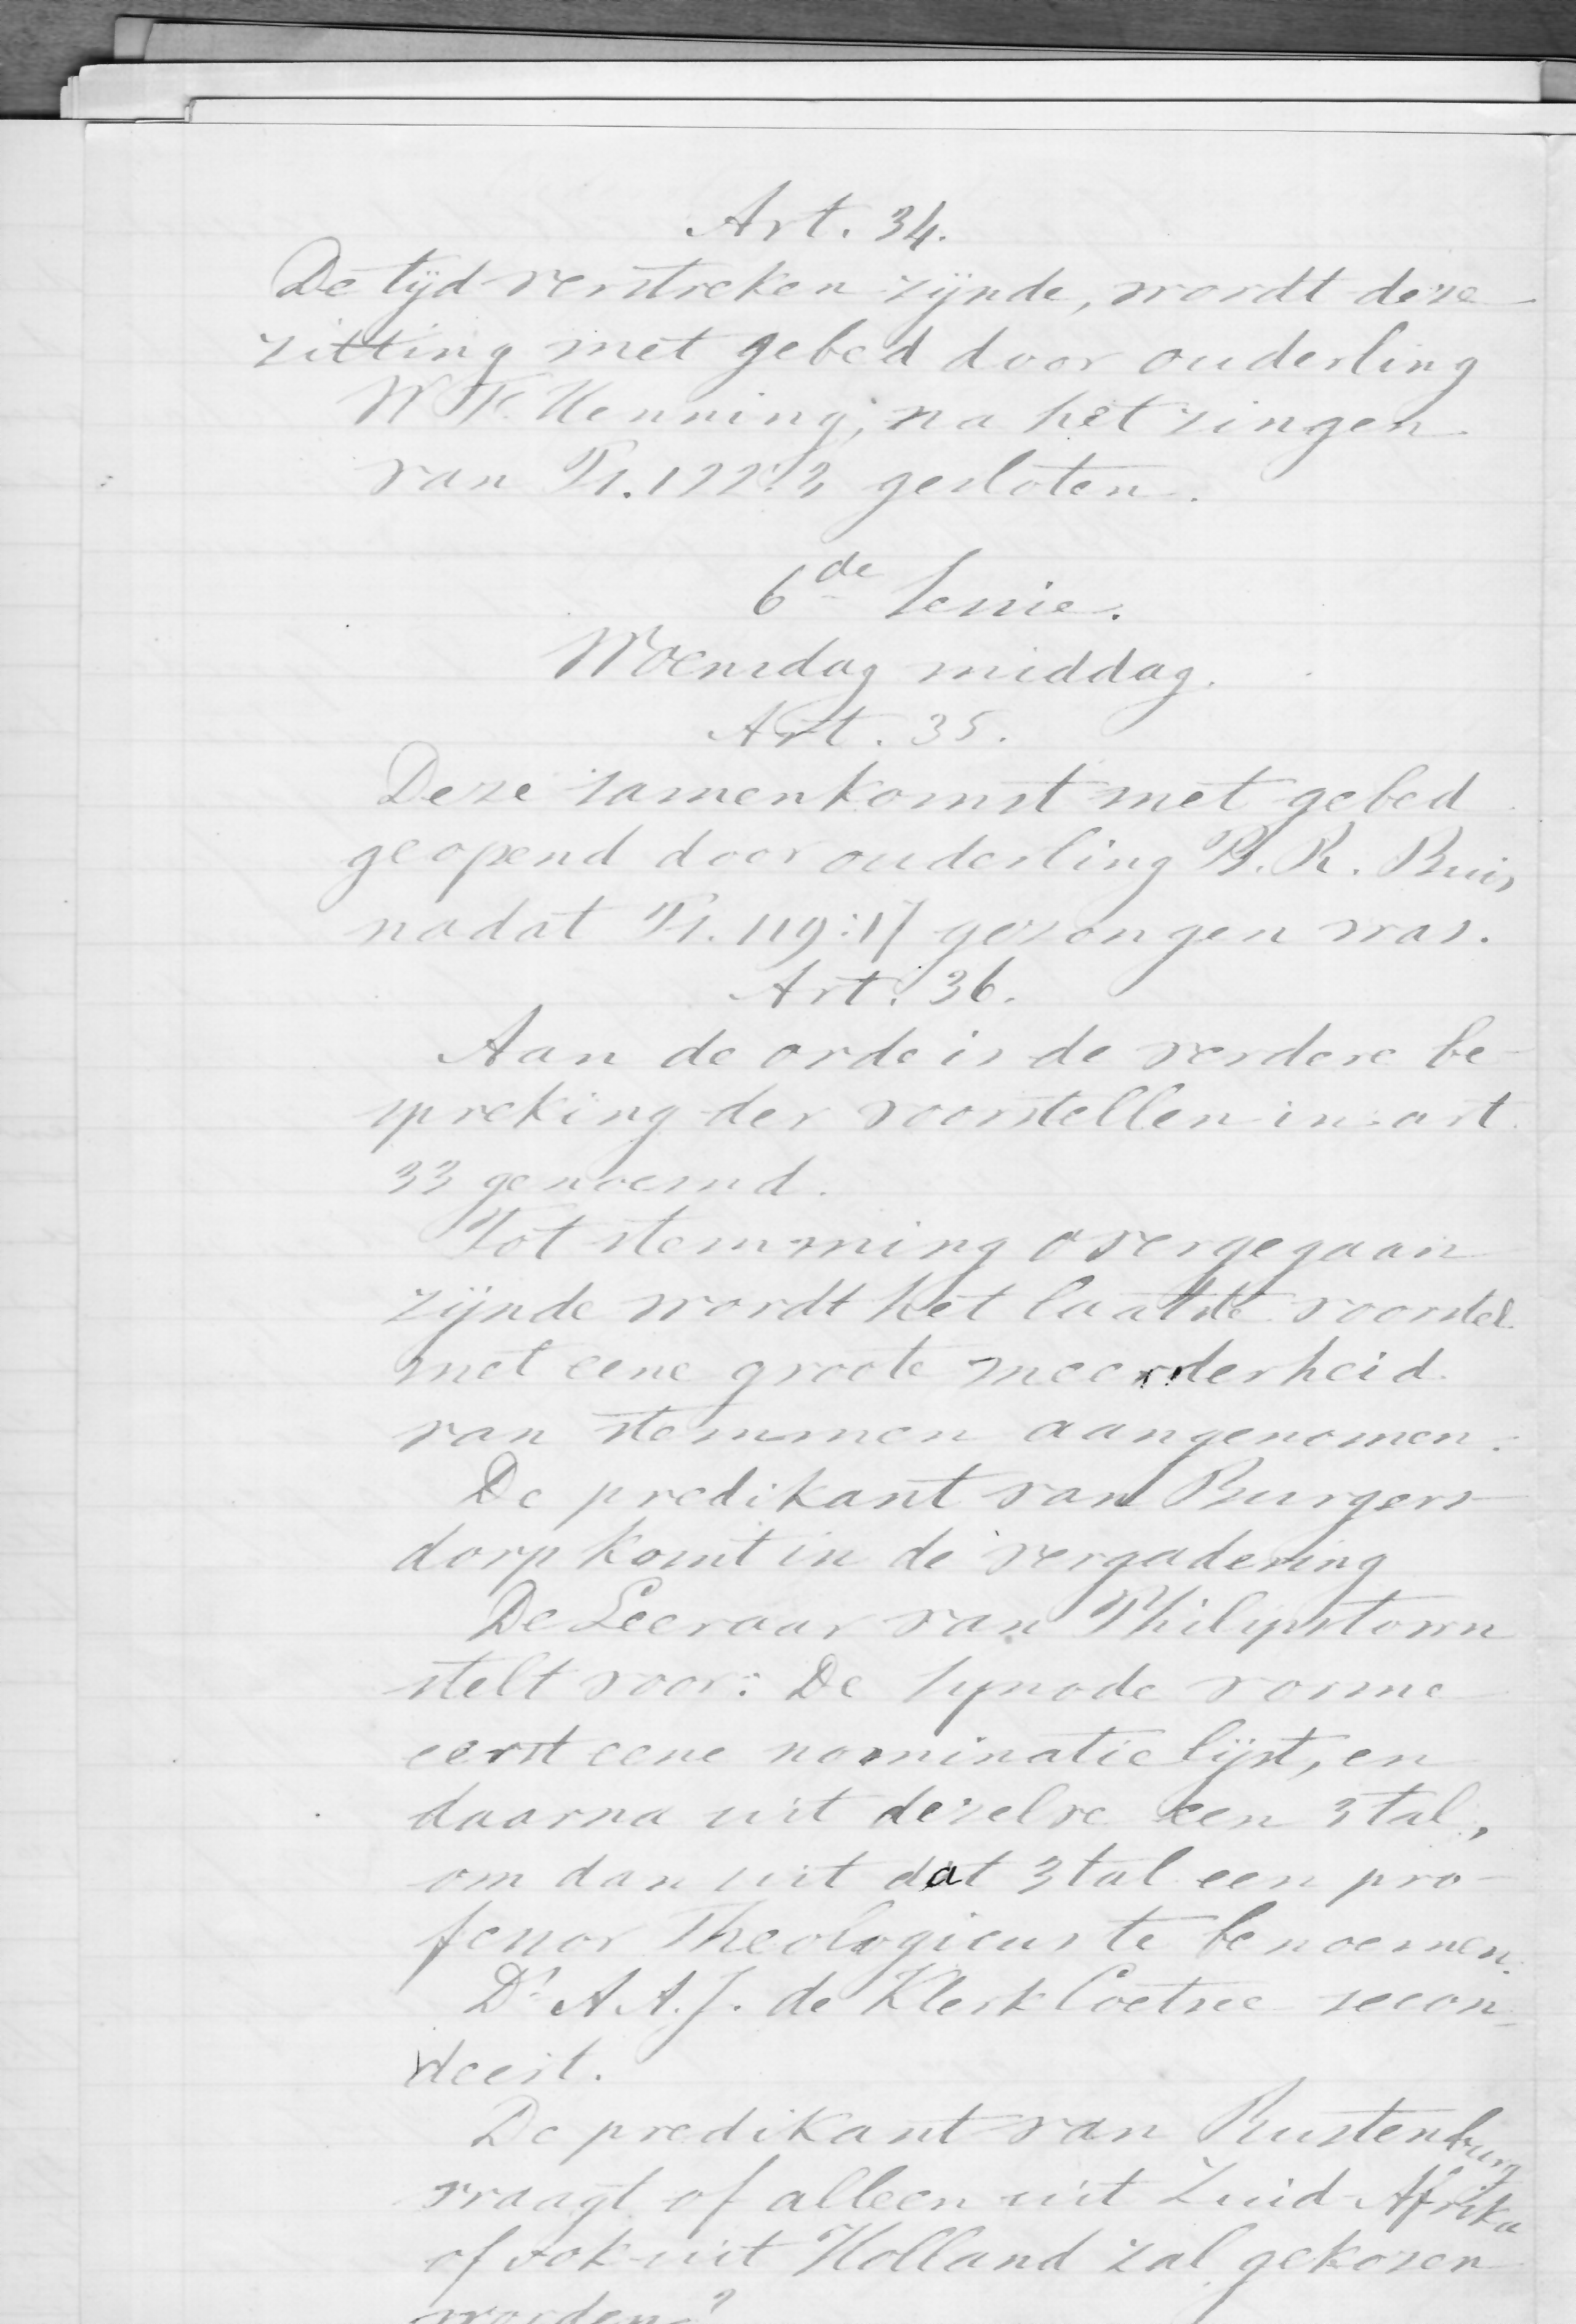 Art. 34.
De tijd verstreken zijnde, wordt deze
zitting met gebed door ouderling
W F. Venning, na het zingen
van Ps. 122:3 gesloten.
6de Sessie.
Woensdag middag.
Art. 35.
Deze samenkomst met gebed
geopend door ouderling P. R. Buis,
nadat Ps. 119:17 gezongen was.
Art. 36.
Aan de orde is de verdere be-
spreking der voorstellen in art.
33 genoemd.
Tot stemming overgegaan
zijnde wordt het laatste voorstel
met eene groote meerderheid
van stemmen aangenomen.
De predikant van Burgers-
dorp komt in de vergadering
De Leeraar van Philipstown
stelt voor: De Synode vorme
eerst eene nominatie lijst, en
daarna uit dezelve een 3 tal,
om dan uit dat 3 tal een pro-
fessor Theologicus te benoemen.
Ds A A. J. de Klerk Coetsee secon-
deert.
De predikant van Rustenburg
vraagt of alleen uit Zuid-Afrika
of ook uit Holland zal gekozen
worden?